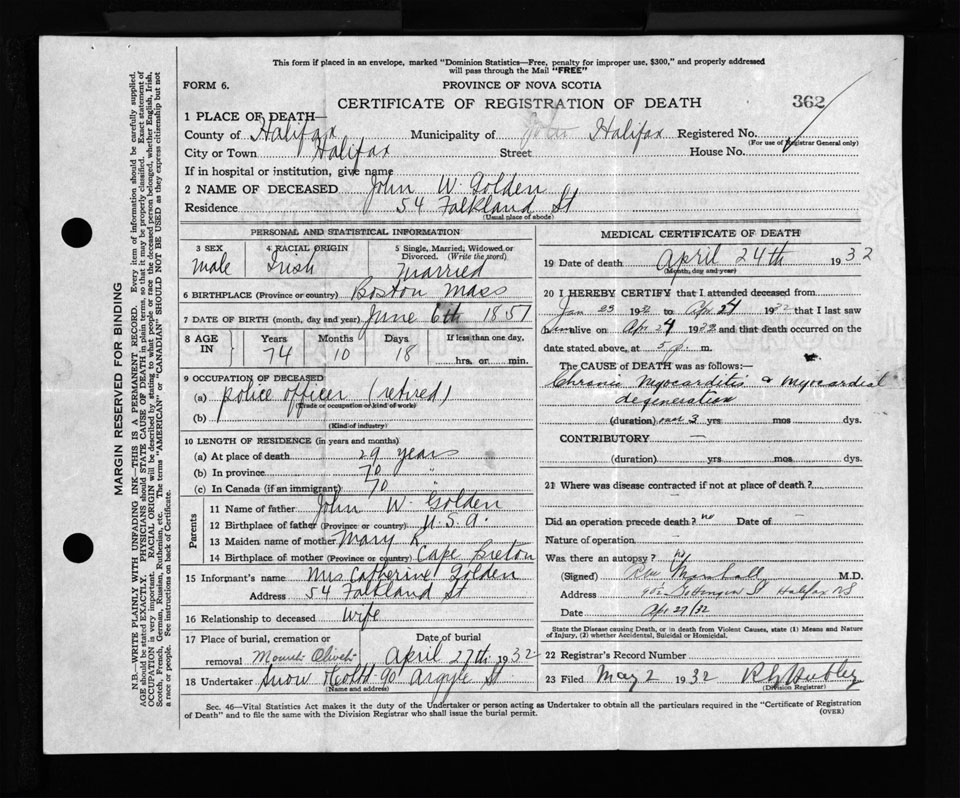 This form if placed in an envelope, marked "Dominion Statistics—Free, penalty for improper use, $300," and properly addressed
will pass through the Mail "FREE"
FORM 6.
PROVINCE OF NOVA SCOTIA
CERTIFICATE OF REGISTRATION OF DEATH
362
1 PLACE OF DEATH—
County of Halifax Municipality of Halifax Registered No.
(For use of Registrar General only)
City or Town Halifax Street House No.
If in hospital or institution, give name
2 NAME OF DECEASED John W. Golden
Residence 54 Falkland St
(Usual place of abode)
PERSONAL AND STATISTICAL INFORMATION
3 SEX 4 RACIAL ORIGIN 5 Single, Married, Widowed or Divorced. (Write the word)
Male Irish Married
6 BIRTHPLACE (Province or country) Boston Mass
7 DATE OF BIRTH (month, day and year) June 6th 1857
8 AGE IN Years Months Days If less than one day,
74 10 18 hrs. or min.
9 OCCUPATION OF DECEASED
(a) police officer (retired)
(Trade or occupation or kind of work)
(b)
(Kind of industry)
10 LENGTH OF RESIDENCE (in years and months)
(a) At place of death 29 years
(b) In province 70 "
(c) In Canada (if an immigrant) 70
Parents
11 Name of father John W Golden
12 Birthplace of father (Province or country) U.S.A.
13 Maiden name of mother Mary K
14 Birthplace of mother (Province or country) Cape Breton
15 Informant's name Mrs Catherine Golden
Address 54 Falkland St
16 Relationship to deceased Wife
17 Place of burial, cremation or Date of burial
removal Mount Olivet April 27th 1932
18 Undertaker Snow 90 Argyle St.
(Name and address)
MEDICAL CERTIFICATE OF DEATH
19 Date of death April 24th 1932
(Month, day and year)
20 I HEREBY CERTIFY that I attended deceased from
Jan 23 1932 to Apr 24 1932 that I last saw
him alive on Apr 24 1932 and that death occurred on the
date stated above, at 5 p. m.
The CAUSE OF DEATH was as follows:—
Chronic Myocarditis & Myocardial
degeneration
(duration) over 3 yrs mos dys.
CONTRIBUTORY —
(duration) yrs mos dys.
21 Where was disease contracted if not at place of death?
Did an operation precede death? no Date of —
Nature of operation —
Was there an autopsy? no
(Signed) Marshall M.D.
Address Gottingen St Halifax NS
Date Apr 27/32
State the Disease causing Death, or in death from Violent Causes, state (1) Means and Nature
of Injury, (2) whether Accidental, Suicidal or Homicidal.
22 Registrar's Record Number
23 Filed May 2 1932 Hubley
(Division Registrar)
Sec. 46—Vital Statistics Act makes it the duty of the Undertaker or person acting as Undertaker to obtain all the particulars required in the "Certificate of Registration
of Death" and to file the same with the Division Registrar who shall issue the burial permit.
(OVER)
MARGIN RESERVED FOR BINDING
N.B.—WRITE PLAINLY WITH UNFADING INK—THIS IS A PERMANENT RECORD. Every item of information should be carefully supplied.
AGE should be stated EXACTLY. PHYSICIANS should STATE CAUSE OF DEATH in plain terms, so that it may be properly classified. Exact statement of
OCCUPATION is very important. RACIAL ORIGIN will be described by stating to what people or race the deceased person belonged, whether English, Irish,
Scotch, French, German, Russian, Ruthenian, etc. The terms "AMERICAN" or "CANADIAN" SHOULD NOT BE USED as they express citizenship but not
a race or people. See instructions on back of Certificate.